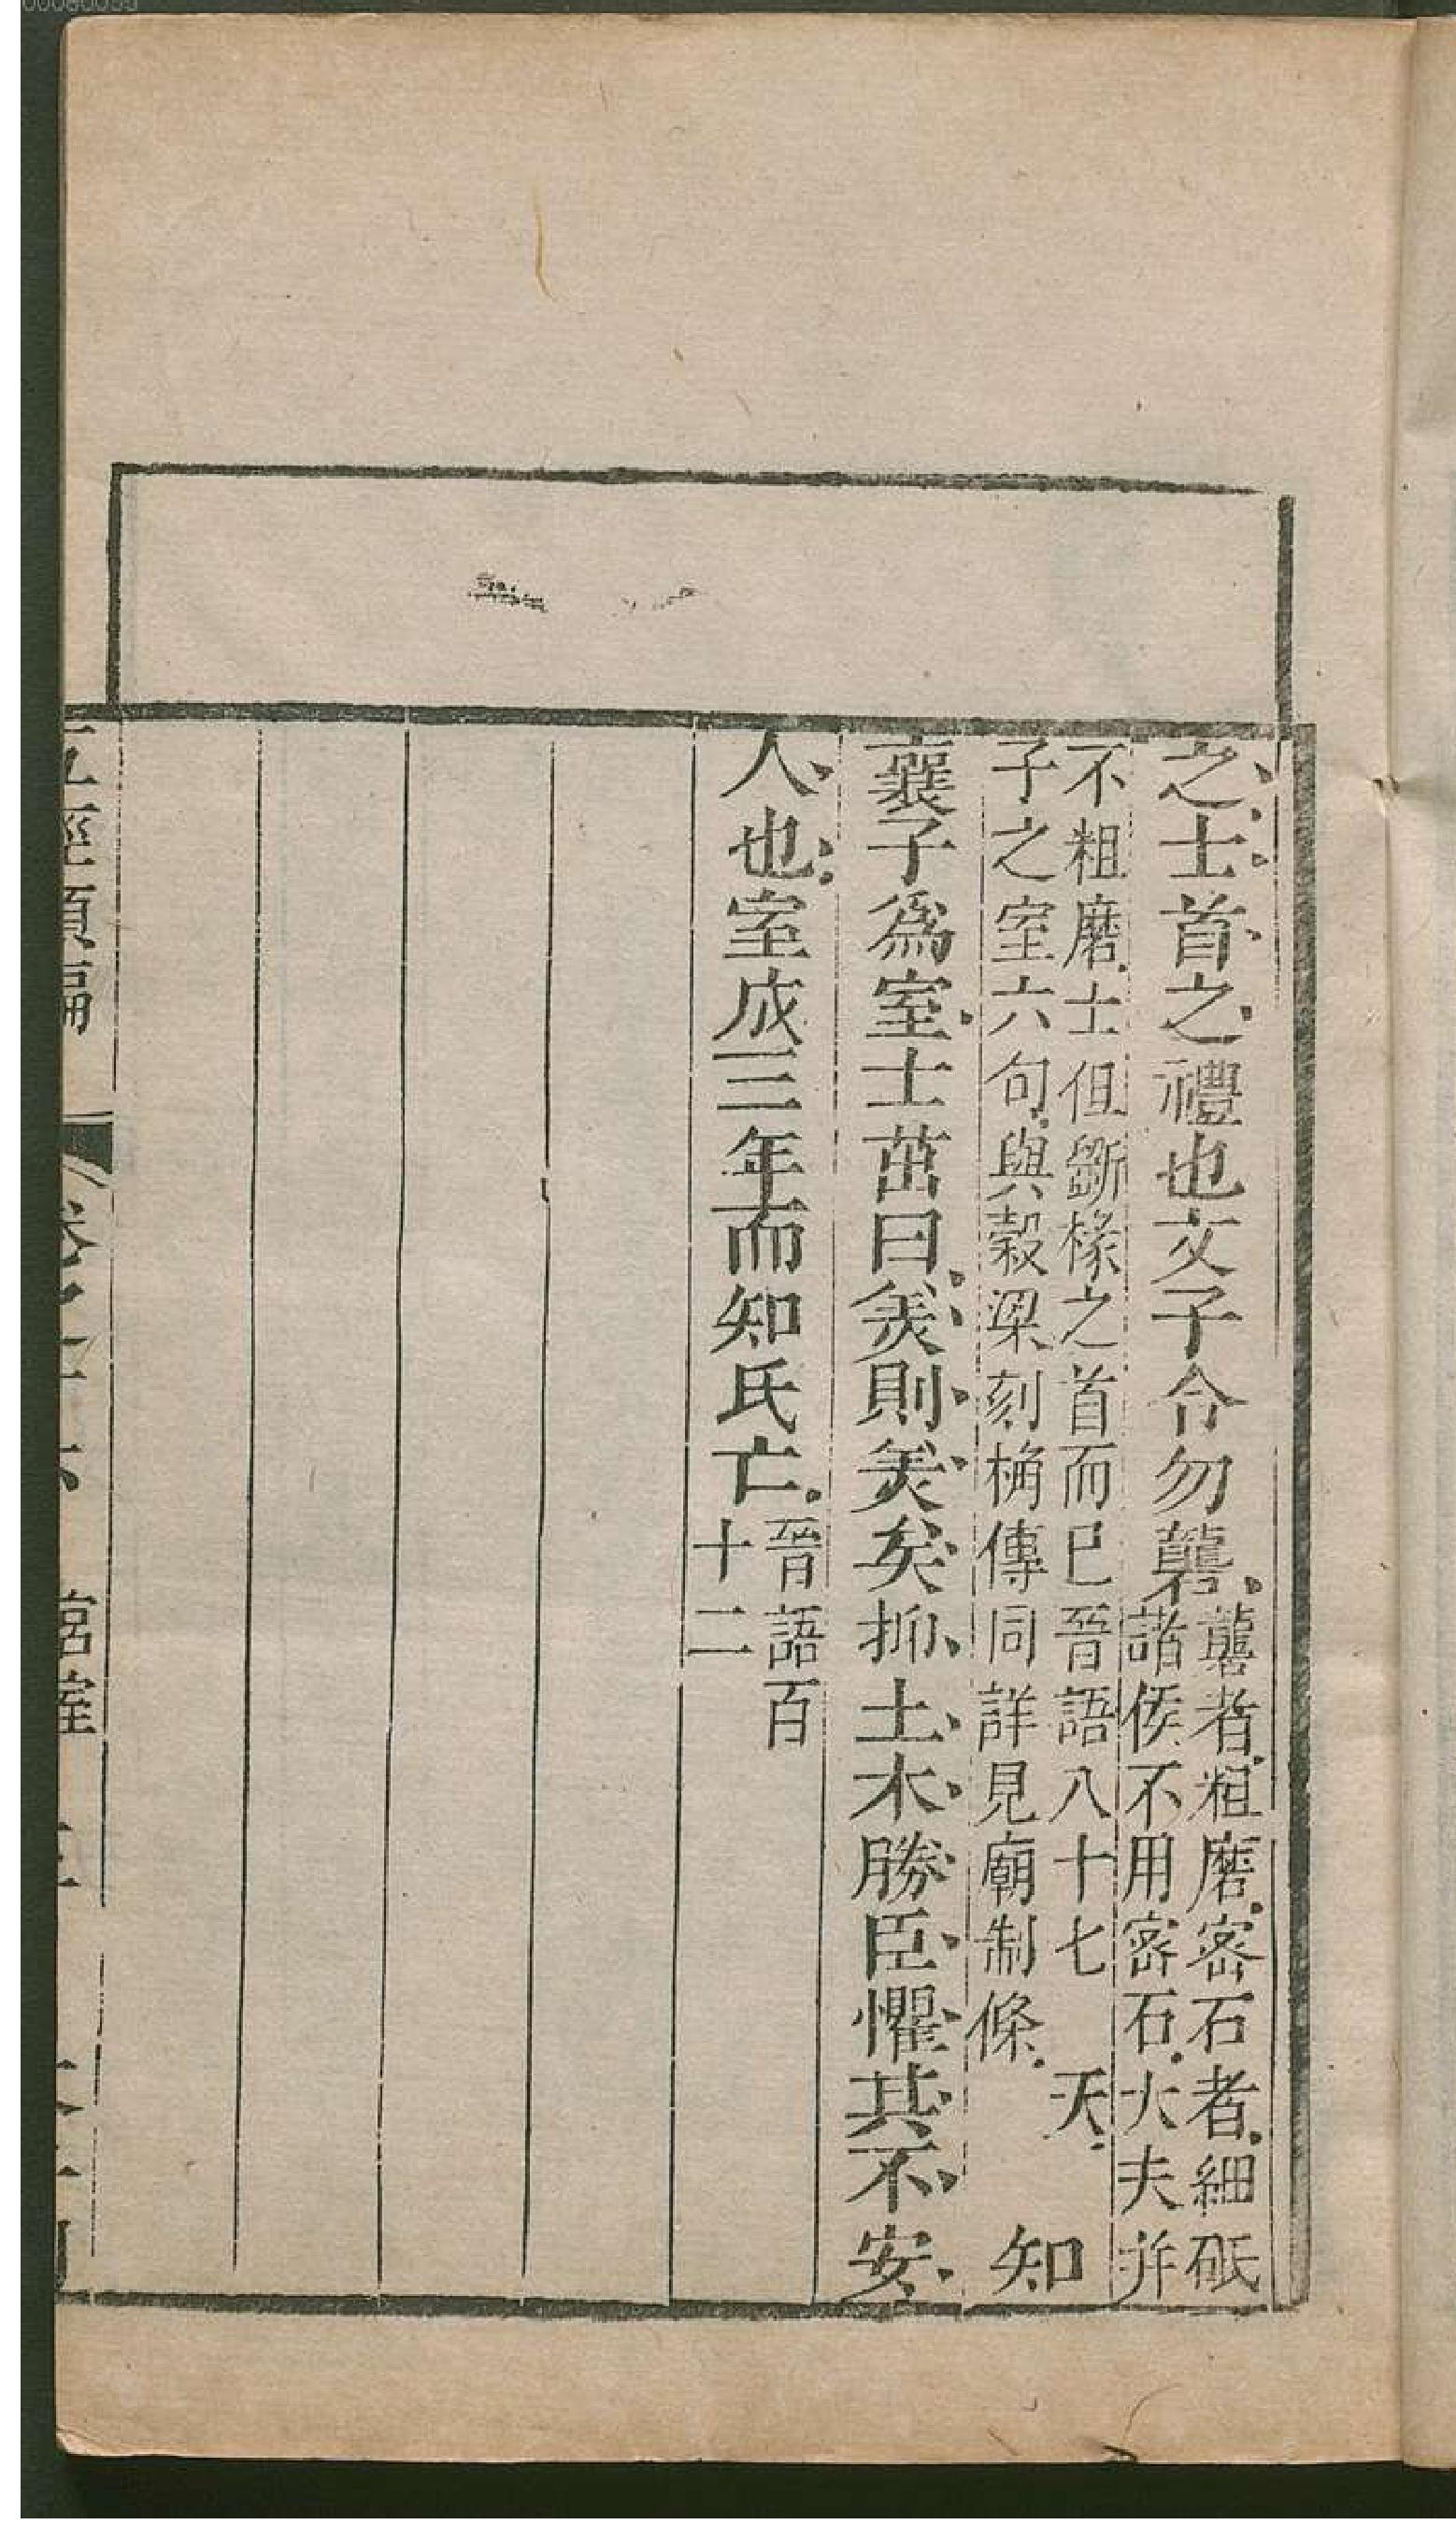 之士首之禮也文子令勿礱礱者粗磨密石者細砥
諸侯不用密石大夫并
不粗磨士但斲椽之首而已晉語八十七　天
子之室六句與穀梁刻桷傳同詳見廟制條　知
襄子爲室士茁曰美則美矣抑土木勝臣懼其不安
人也室成三年而知氏亡晉語百
十二
五經類編　卷之　宮室